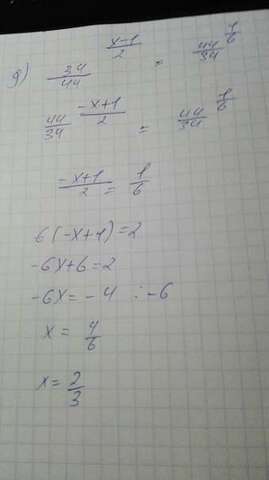 g) 34/44 ^ (x-1)/2 = 44/34 ^ 1/6
44/34 ^ (-x+1)/2 = 44/34 ^ 1/6
(-x+1)/2 = 1/6
6(-x+1)=2
-6x+6=2
-6x=-4 :-6
x = 4/6
x = 2/3